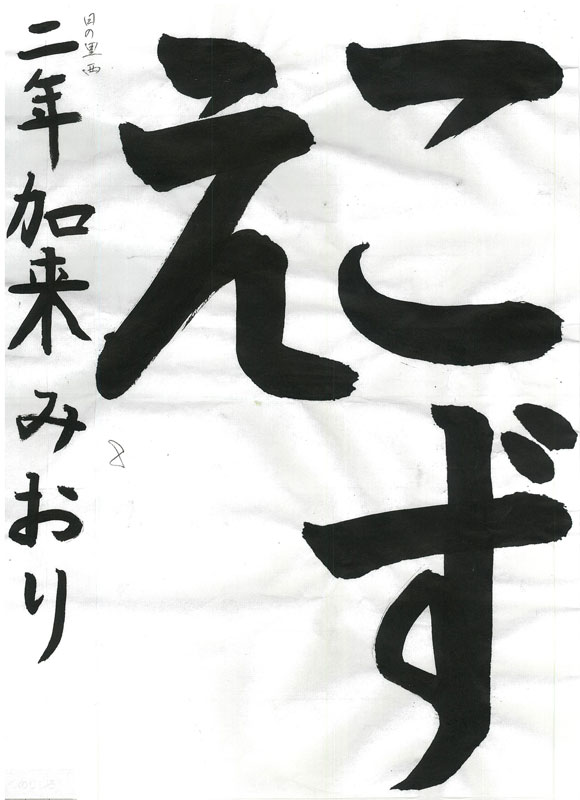 こずえ
二年 加来みおり
日の里西
8